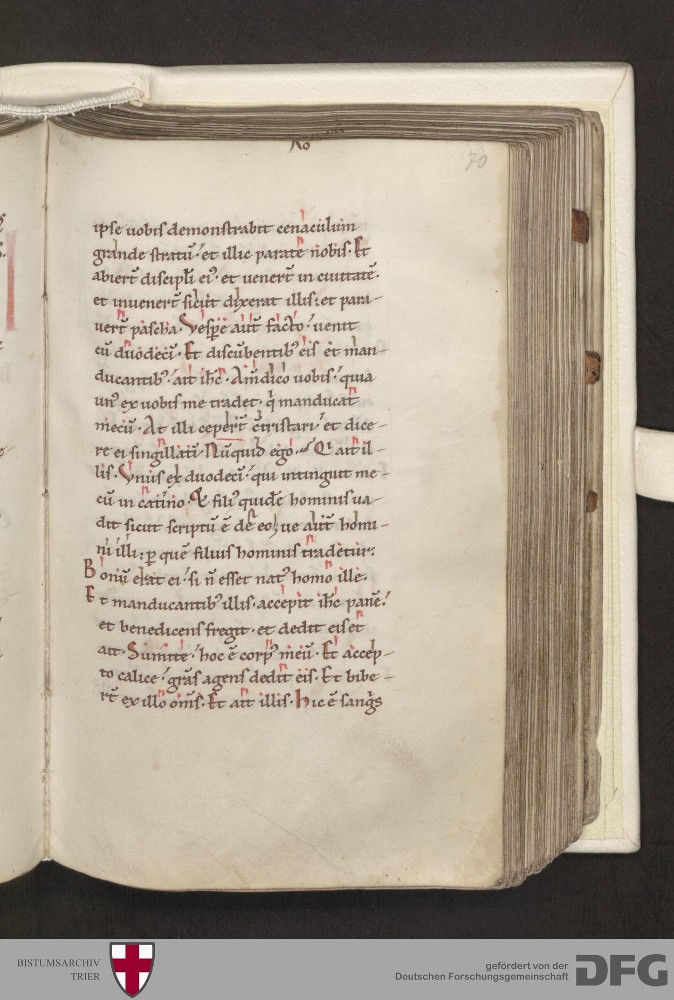 20
ipse uobis demonstrabit cenaculum
grande stratū. et illic parate nobis. Et
abiert̄ discipl̄i ei᾽. et uenert̄ in ciuitatē.
et inuenert̄ sicut dixerat illis. et para-
uert̄ pascha. Vespe aut̄ facto. uenit
cū duodeci. Et discūbentib᾽ eis et man-
ducantib᾽. ait ih̄c. Am̄ dico uobis. quia
un᾽ ex uobis me tradet. q̄ manducat
mecū. At illi cepert̄ c̄tristari. et dice-
re ei singillati. Nūquid ego. Q ait il-
lis. Vnus ex duodeci. qui intinguit me-
cū in catino. Et fili᾽ quidē hominis ua-
dit sicut scriptū ē de eo. ue aut̄ homi-
ni illi. p quē filius hominis tradetur.
Bonū erat ei. si n̄ esset nat᾽ homo ille.
Et manducantib᾽ illis. accepit ih̄c panē.
et benedicens fregit. et dedit eis et
ait. Sumite. hoc ē corp᾽ meū. Et accep-
to calice. grās agens dedit eis. Et bibe-
rt̄ ex illo om̄s. Et ait illis. hic ē sangs
BISTUMSARCHIV
TRIER
gefördert von der
Deutschen Forschungsgemeinschaft
DFG